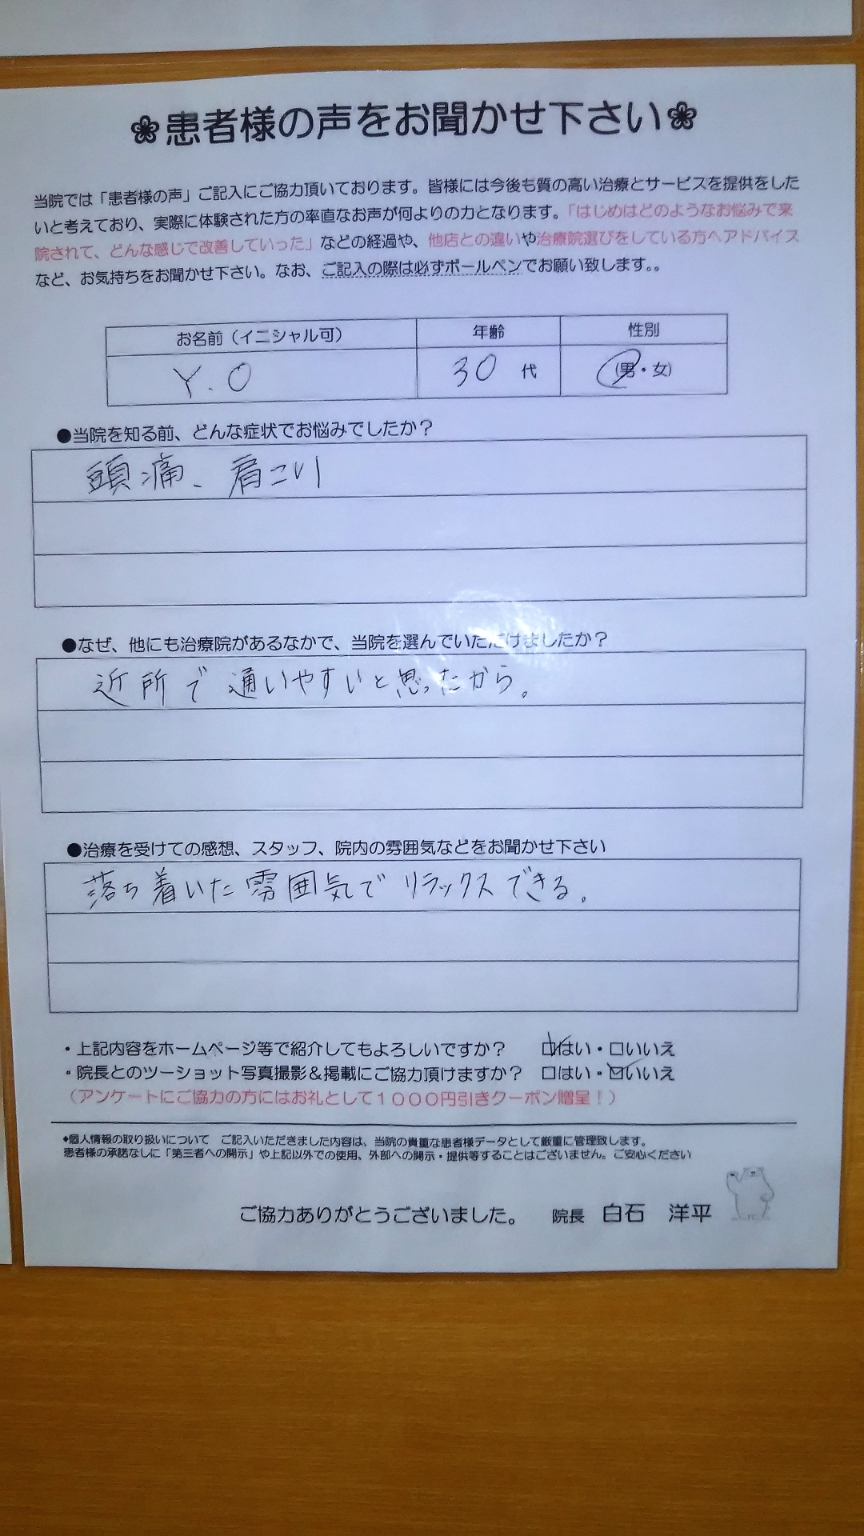 ❀患者様の声をお聞かせ下さい❀
当院では「患者様の声」ご記入にご協力頂いております。皆様には今後も質の高い治療とサービスを提供をした
いと考えており、実際に体験された方の率直なお声が何よりの力となります。「はじめはどのようなお悩みで来
院されて、どんな感じで改善していった」などの経過や、他店との違いや治療院選びをしている方へアドバイス
など、お気持ちをお聞かせ下さい。なお、ご記入の際は必ずボールペンでお願い致します。。
お名前（イニシャル可） 年齢 性別
Y.O 30 代 (男・女)
●当院を知る前、どんな症状でお悩みでしたか？
頭痛、肩こり
●なぜ、他にも治療院があるなかで、当院を選んでいただけましたか？
近所で通いやすいと思ったから。
●治療を受けての感想、スタッフ、院内の雰囲気などをお聞かせ下さい
落ち着いた雰囲気でリラックスできる。
・上記内容をホームページ等で紹介してもよろしいですか？ ☑はい・□いいえ
・院長とのツーショット写真撮影＆掲載にご協力頂けますか？ □はい・☑いいえ
（アンケートにご協力の方にはお礼として１０００円引きクーポン贈呈！）
◆個人情報の取り扱いについて ご記入いただきました内容は、当院の貴重な患者様データとして厳重に管理致します。
患者様の承諾なしに「第三者への開示」や上記以外での使用、外部への開示・提供等することはございません。ご安心ください
ご協力ありがとうございました。 院長 白石 洋平